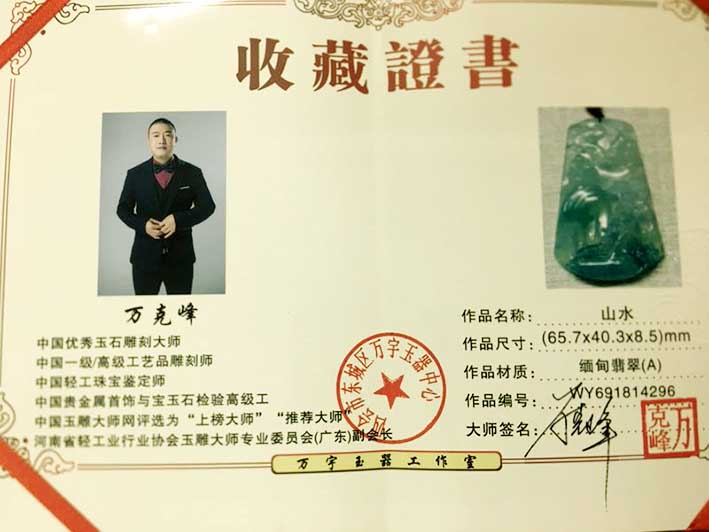 收藏證書
万克峰
中国优秀玉石雕刻大师
中国一级/高级工艺品雕刻师
中国轻工珠宝鉴定师
中国贵金属首饰与宝玉石检验高级工
中国玉雕大师网评选为“上榜大师”“推荐大师”
河南省轻工业行业协会玉雕大师专业委员会(广东)副会长
四会市东城区万宇玉器中心
作品名称: 山水
作品尺寸: (65.7x40.3x8.5)mm
作品材质: 缅甸翡翠(A)
作品编号: WY691814296
大师签名:
万克峰
万宇玉器工作室